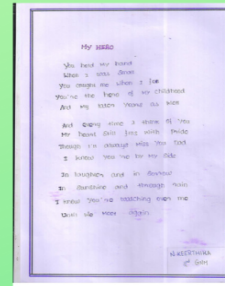 My HERO
You held my hand
When I was small
You caught me when I fell
You're the hero of my childhood
And my
And every time I think of you
My heart still fills with Pride
Though I'll always miss you Dad
I know you're by my side
In laughter and in sorrow
In sunshine and through rain
I know you're watching over me
Until we meet again